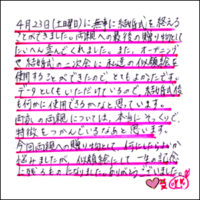 4月23日(土曜日)に無事に結婚式を終える
ことができました。両親への最後の贈り物として
たいへん喜んでくれました。また、オープニング
や結婚式の二次会に私達の似顔絵を
使用することができたので、とてもよかったです。
データとしてもいただけているので、結婚式後
も何かに使用できるかなと思っています。
両家の両親については、本当にそっくりで、
特徴もつかんでいるなあと思います。
今回両親への贈り物として、何にしたらよいか
悩みましたが、似顔絵にして一生の記念
に残るものになりました。ありがとうございました。